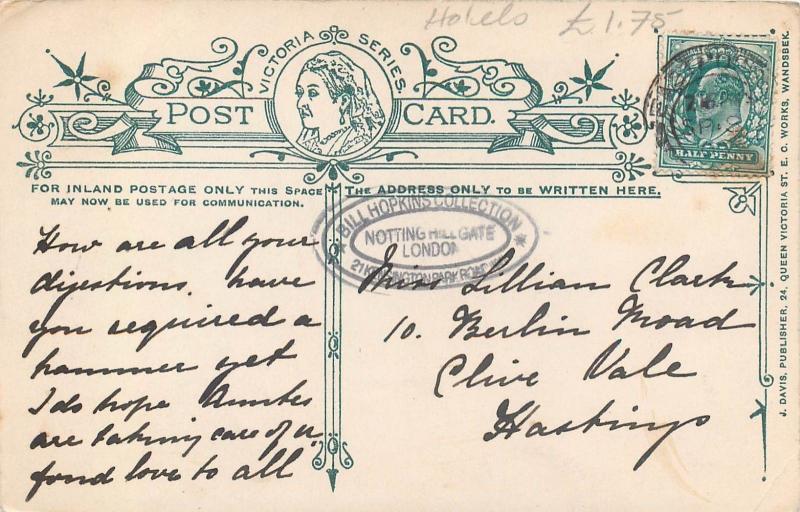 Hotels £1.75
VICTORIA SERIES.
POST CARD.
HALF PENNY
FOR INLAND POSTAGE ONLY THIS SPACE
MAY NOW BE USED FOR COMMUNICATION.
THE ADDRESS ONLY TO BE WRITTEN HERE.
BILL HOPKINS COLLECTION
NOTTING HILL GATE
LONDON
21 KENSINGTON PARK ROAD
How are all your
digestions. have
you required a
hammer yet
I do hope Aunties
are taking care of u.
fond love to all
Miss Lillian Clark
10. Berlin Road
Clive Vale
Hastings
J. DAVIS, PUBLISHER, 24, QUEEN VICTORIA ST. E. C. WORKS, WANDSBEK.